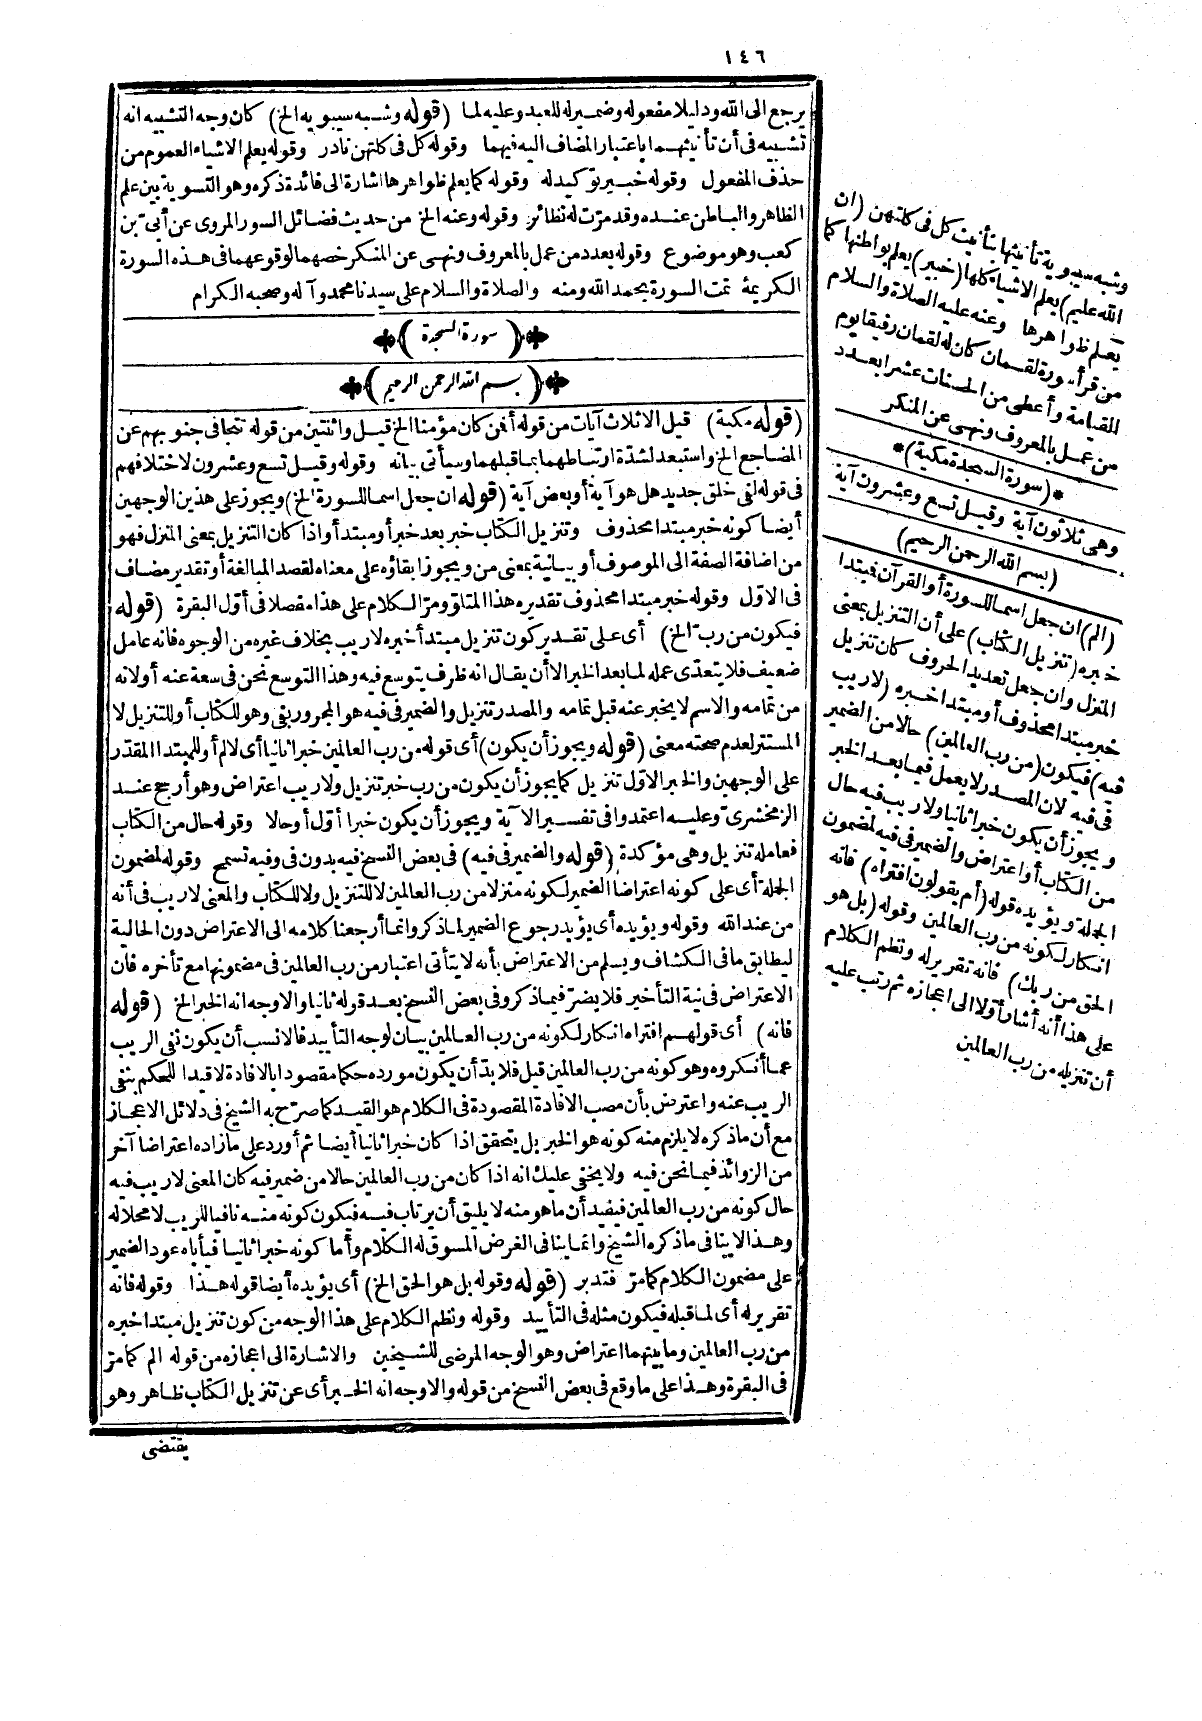 ١٤٦
يرجع الى الله ودليلا مفعوله وضميره للعبد وعليه لما (قوله وشبه سيبويه الخ) كان وجه التشبيه انه
تشبيه فى أن تأنيثهما باعتبار المضاف اليه فيهما وقوله كل فى كلتهن نادر وقوله يعلم الاشياء العموم من
حذف المفعول وقوله خبير توكيد له وقوله كما يعلم ظواهرها اشارة الى فائدة ذكره وهو التسوية بين علم
الظاهر والباطن عنده وقد مرّت له نظائر وقوله وعنه الخ من حديث فضائل السور المروى عن أبىّ بن
كعب وهو موضوع وقوله بعدد من عمل بالمعروف ونهى عن المنكر خصهما لوقوعهما فى هذه السورة
الكريمة تمت السورة بحمد الله ومنه والصلاة والسلام على سيدنا محمد وآله وصحبه الكرام
(سورة السجدة)
(بسم الله الرحمن الرحيم)
(قوله مكية) قيل الا ثلاث آيات من قوله أفمن كان مؤمنا الخ قيل واثنتين من قوله تتجافى جنوبهم عن
المضاجع الخ واستبعد لشدّة ارتباطهما بما قبلهما وسيأتى بيانه وقوله وقيل تسع وعشرون لاختلافهم
فى قوله لفى خلق جديد هل هو آية أو بعض آية (قوله ان جعل اسما للسورة الخ) ويجوز على هذين الوجهين
أيضا كونه خبر مبتدا محذوف وتنزيل الكتاب خبر بعد خبر أو مبتدأ واذا كان التنزيل بمعنى المنزل فهو
من اضافة الصفة الى الموصوف أو بيانية بمعنى من ويجوز ابقاؤه على معناه لقصد المبالغة أو تقدير مضاف
فى الاوّل وقوله خبر مبتدا محذوف تقديره هذا المتلوّ ومرّ الكلام على هذا مفصلا فى أوّل البقرة (قوله
فيكون من رب الخ) أى على تقدير كون تنزيل مبتدأ خبره لا ريب بخلاف غيره من الوجوه فانه عامل
ضعيف فلا يتعدّى عمله لما بعد الخبر الا أن يقال انه ظرف يتوسع فيه وهذا التوسع نحن فى سعة عنه أو لانه
من تمامه والاسم لا يخبر عنه قبل تمامه والمصدر تنزيل والضمير فى فيه هو المجرور بفى وهو للكتاب أو للتنزيل لا
المستتر لعدم صحته معنى (قوله ويجوز أن يكون) أى قوله من رب العالمين خبرا ثانيا أى لالم أو للمبتدا المقدّر
على الوجهين والخبر الاوّل تنزيل كما يجوز أن يكون من رب خبر تنزيل ولا ريب اعتراض وهو أرجح عند
الزمخشرى وعليه اعتمدوا فى تفسير الآية ويجوز أن يكون خبرا أوّل أو حالا وقوله حال من الكتاب
فعامله تنزيل وهى مؤكدة (قوله والضمير فى فيه) فى بعض النسخ فيه بدون فى وفيه تسمح وقوله لمضمون
الجملة أى على كونه اعتراضا الضمير لكونه منزلا من رب العالمين لا للتنزيل ولا للكتاب والمعنى لا ريب فى أنه
من عند الله وقوله ويؤيده أى يؤيد رجوع الضمير لما ذكر وانما أرجعنا كلامه الى الاعتراض دون الحالية
ليطابق ما فى الكشاف ويسلم من الاعتراض بأنه لا يتأتى اعتبار من رب العالمين فى مضمونها مع تأخره فان
الاعتراض فى نية التأخير فلا يضرّ فيما ذكر وفى بعض النسخ بعد قوله ثانيا والاوجه انه الخبر الخ (قوله
فانه) أى قولهم افتراه انكار لكونه من رب العالمين بيان لوجه التأييد فالانسب أن يكون نفى الريب
عما أنكروه وهو كونه من رب العالمين قيل فلا بدّ أن يكون مورده حكما مقصودا بالافادة لا قيدا للحكم بنفى
الريب عنه واعترض بأن مصب الافادة المقصودة فى الكلام هو القيد كما صرّح به الشيخ فى دلائل الاعجاز
مع أن ما ذكره لا يلزم منه كونه هو الخبر بل يتحقق اذا كان خبرا ثانيا أيضا ثم أورد على ما زاده اعتراضا آخر
من الزوائد فيما نحن فيه ولا يخفى عليك انه اذا كان من رب العالمين حالا من ضمير فيه كان المعنى لا ريب فيه
حال كونه من رب العالمين فيفيد أن ما هو منه لا يليق أن يرتاب فيه فيكون كونه منه نافيا للريب لا محلا له
وهذا لا ينافى ما ذكره الشيخ وانما ينافى الغرض المسوق له الكلام وأما كونه خبرا ثانيا فيأباه عود الضمير
على مضمون الكلام كما مرّ فتدبر (قوله وقوله بل هو الحق الخ) أى يؤيده أيضا قوله هذا وقوله فانه
تقرير له أى لما قبله فيكون مثله فى التأييد وقوله ونظم الكلام على هذا الوجه من كون تنزيل مبتدا خبره
من رب العالمين وما بينهما اعتراض وهو الوجه المرضى للشيخين والاشارة الى اعجازه من قوله الم كما مرّ
فى البقرة وهذا على ما وقع فى بعض النسخ من قوله والاوجه انه الخبر أى عن تنزيل الكتاب ظاهر وهو
يقتضى
وشبه سيبويه تأنيثها بتأنيث كل فى كلتهن (ان
الله عليم) يعلم الاشياء كلها (خبير) يعلم بواطنها كما
يعلم ظواهرها وعنه عليه الصلاة والسلام
من قرأ سورة لقمان كان له لقمان رفيقا يوم
القيامة وأعطى من الحسنات عشرا بعدد
من عمل بالمعروف ونهى عن المنكر
*(سورة السجدة مكية)*
وهى ثلاثون آية وقيل تسع وعشرون آية
(بسم الله الرحمن الرحيم)
(الم) ان جعل اسما للسورة أو القرآن فمبتدا
خبره (تنزيل الكتاب) على أن التنزيل بمعنى
المنزل وان جعل تعديد الحروف كان تنزيل
خبر مبتدا محذوف أو مبتدا خبره (لا ريب
فيه) فيكون (من رب العالمين) حالا من الضمير
فى فيه لان المصدر لا يعمل فيما بعد الخبر
ويجوز أن يكون خبرا ثانيا ولا ريب فيه حال
من الكتاب أو اعتراض والضمير فى فيه لمضمون
الجملة ويؤيده قوله (أم يقولون افتراه) فانه
انكار لكونه من رب العالمين وقوله (بل هو
الحق من ربك) فانه تقرير له ونظم الكلام
على هذا أنه أشار أوّلا الى اعجازه ثم رتب عليه
أن تنزيله من رب العالمين